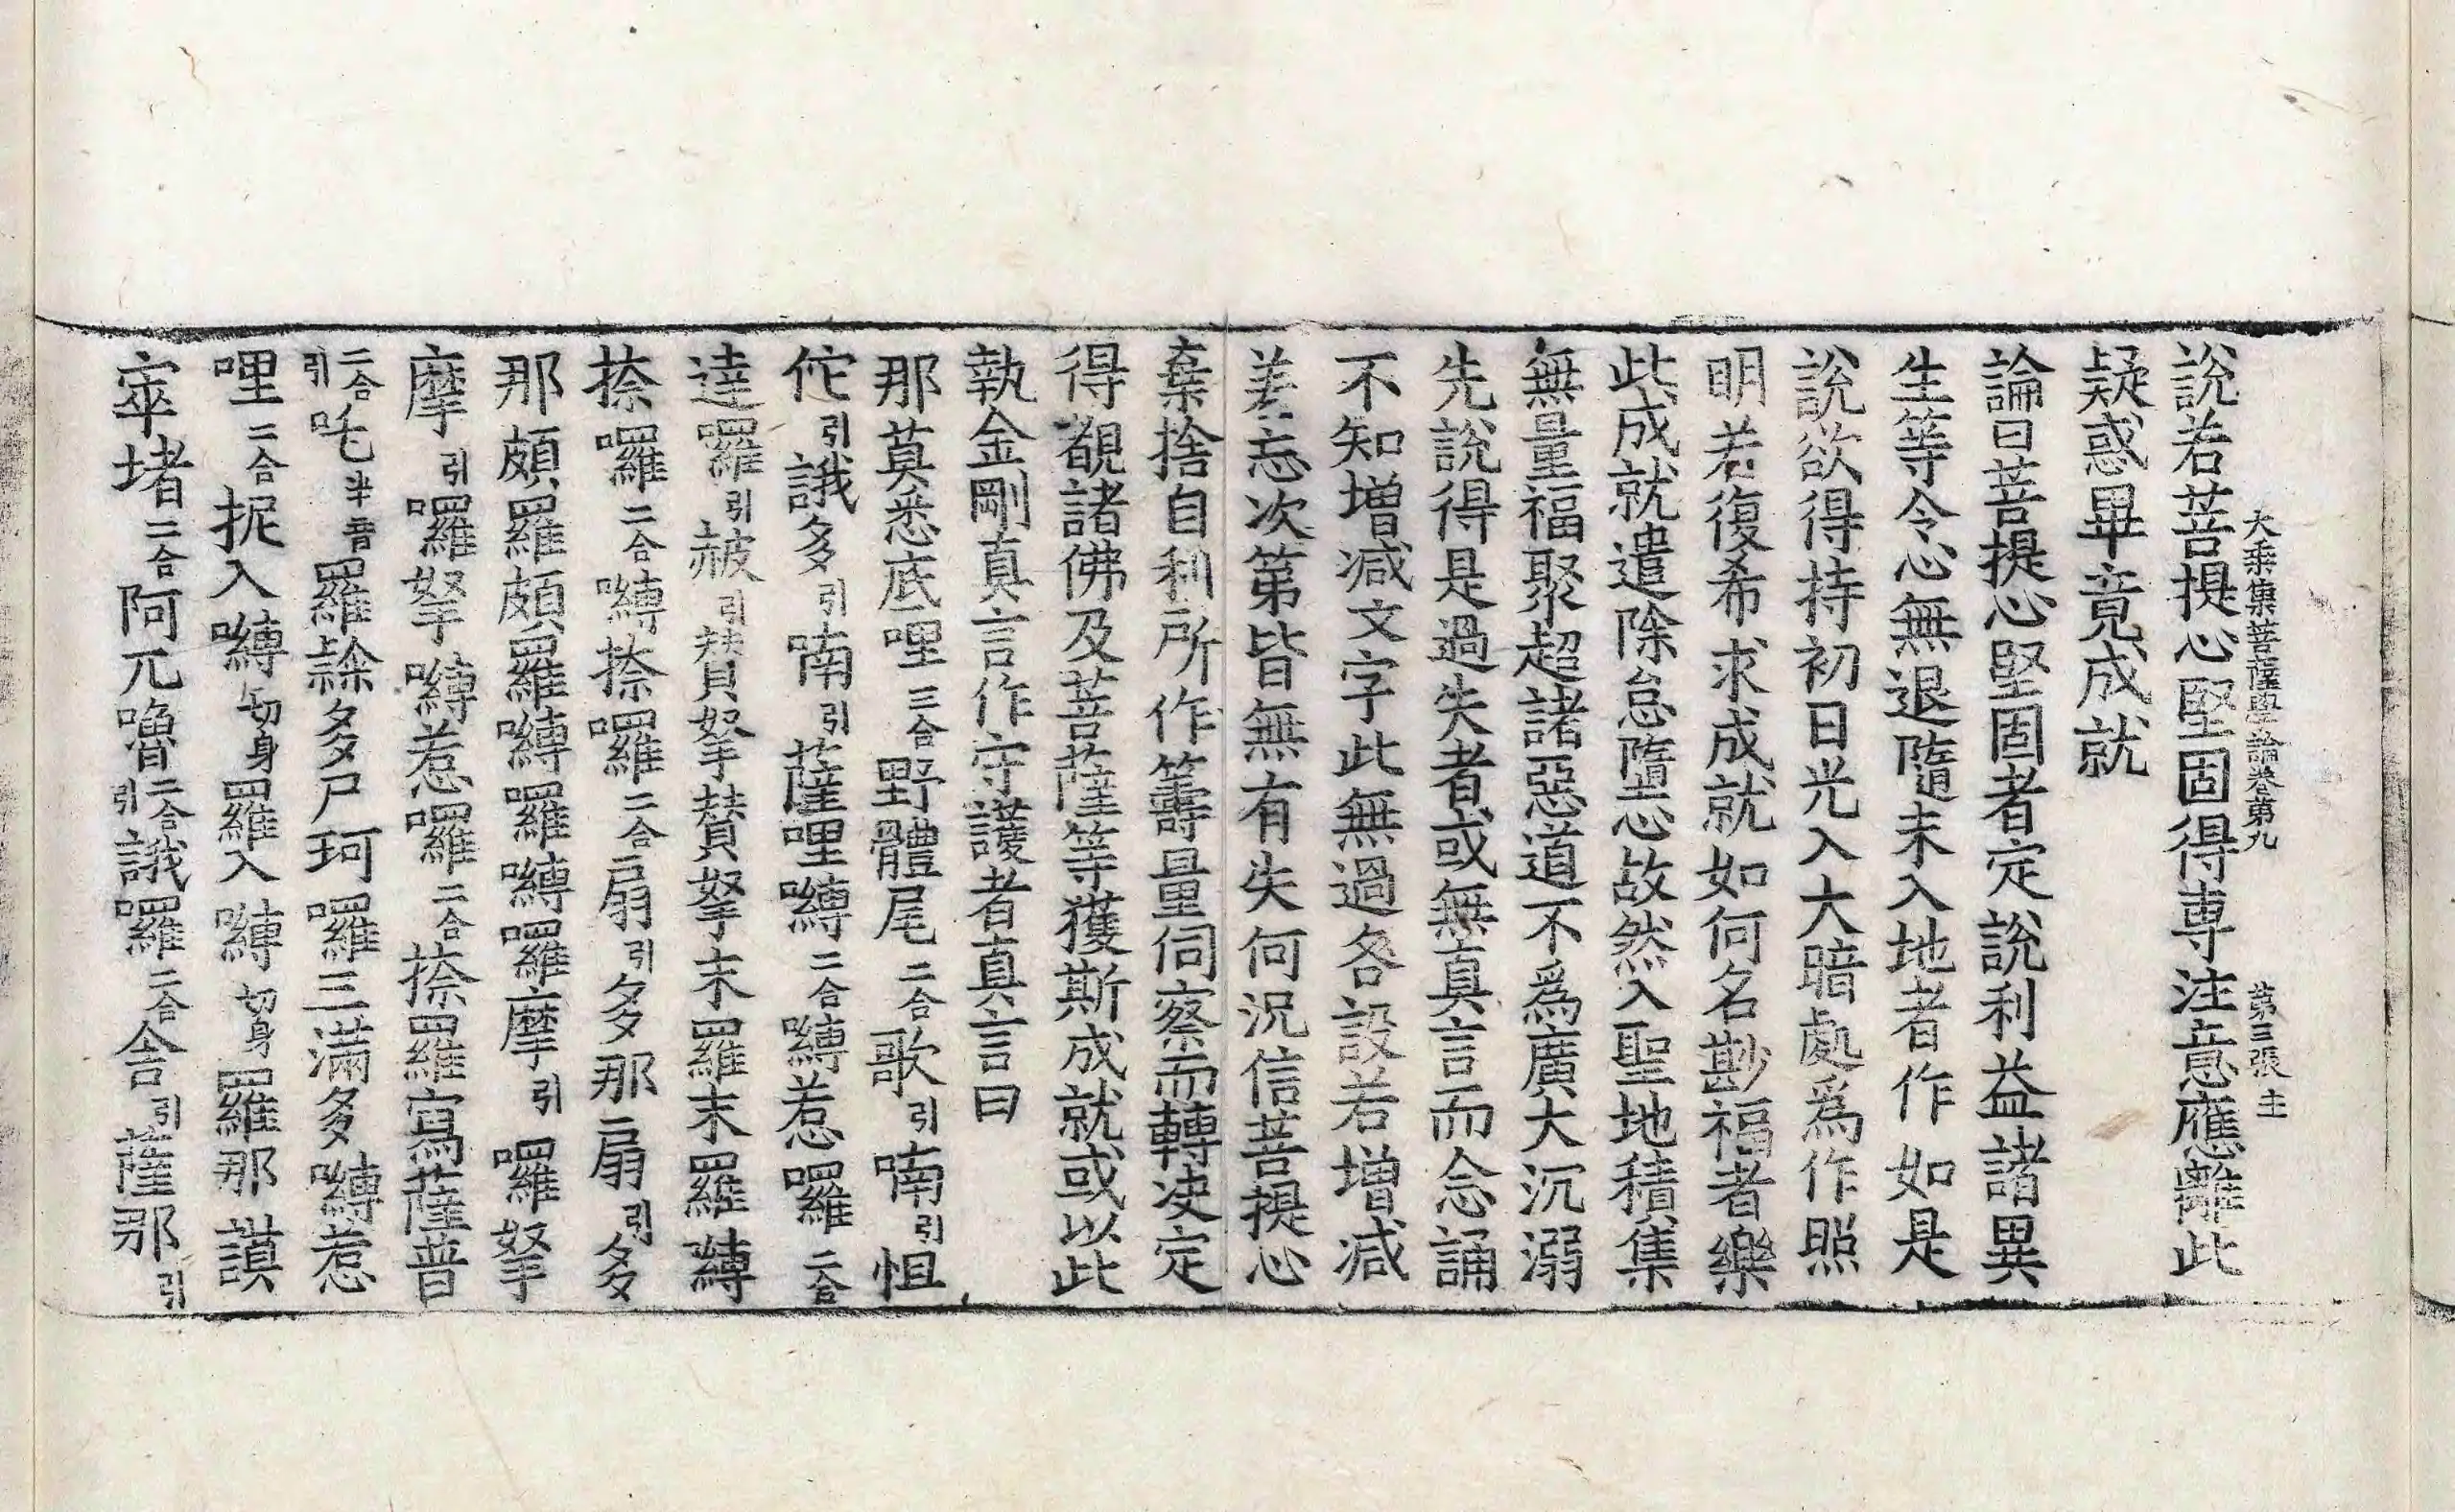 大乘集菩薩學論卷第九 第三張 主
說若菩提心堅固得專注意應離此
疑惑畢竟成就
論曰菩提心堅固者定說利益諸異
生等令心無退隨未入地者作如是
說欲得持初日光入大暗處爲作照
明若復希求成就如何名尠福者樂
此成就遣除怠墮忘故然入聖地積集
無量福聚超諸惡道不爲廣大沉溺
先說得是過失者或無真言而念誦
不知增減文字此無過咎設若增減
差忘次第皆無有失何況信菩提心
棄捨自利所作籌量伺察而轉決定
得覩諸佛及菩薩等獲斯成就或以此
執金剛真言作守護者真言曰
那莫悉底哩三合野體尾二合歌引喃引怛
佗引誐多引喃引薩哩嚩二合嚩惹囉二合
達囉引赧引賛拏賛拏末羅末羅嚩
捺囉二合嚩捺囉二合扇引多那扇引多
那頗羅頗羅嚩囉嚩囉摩引囉拏
摩引囉拏嚩惹囉二合捺羅寫薩普
二合引吒半音羅隸多尸珂囉三滿多嚩惹
哩二合抳入嚩切身羅入嚩切身羅那謨
窣堵二合阿兀嚕二合引誐囉二合舍引薩那引